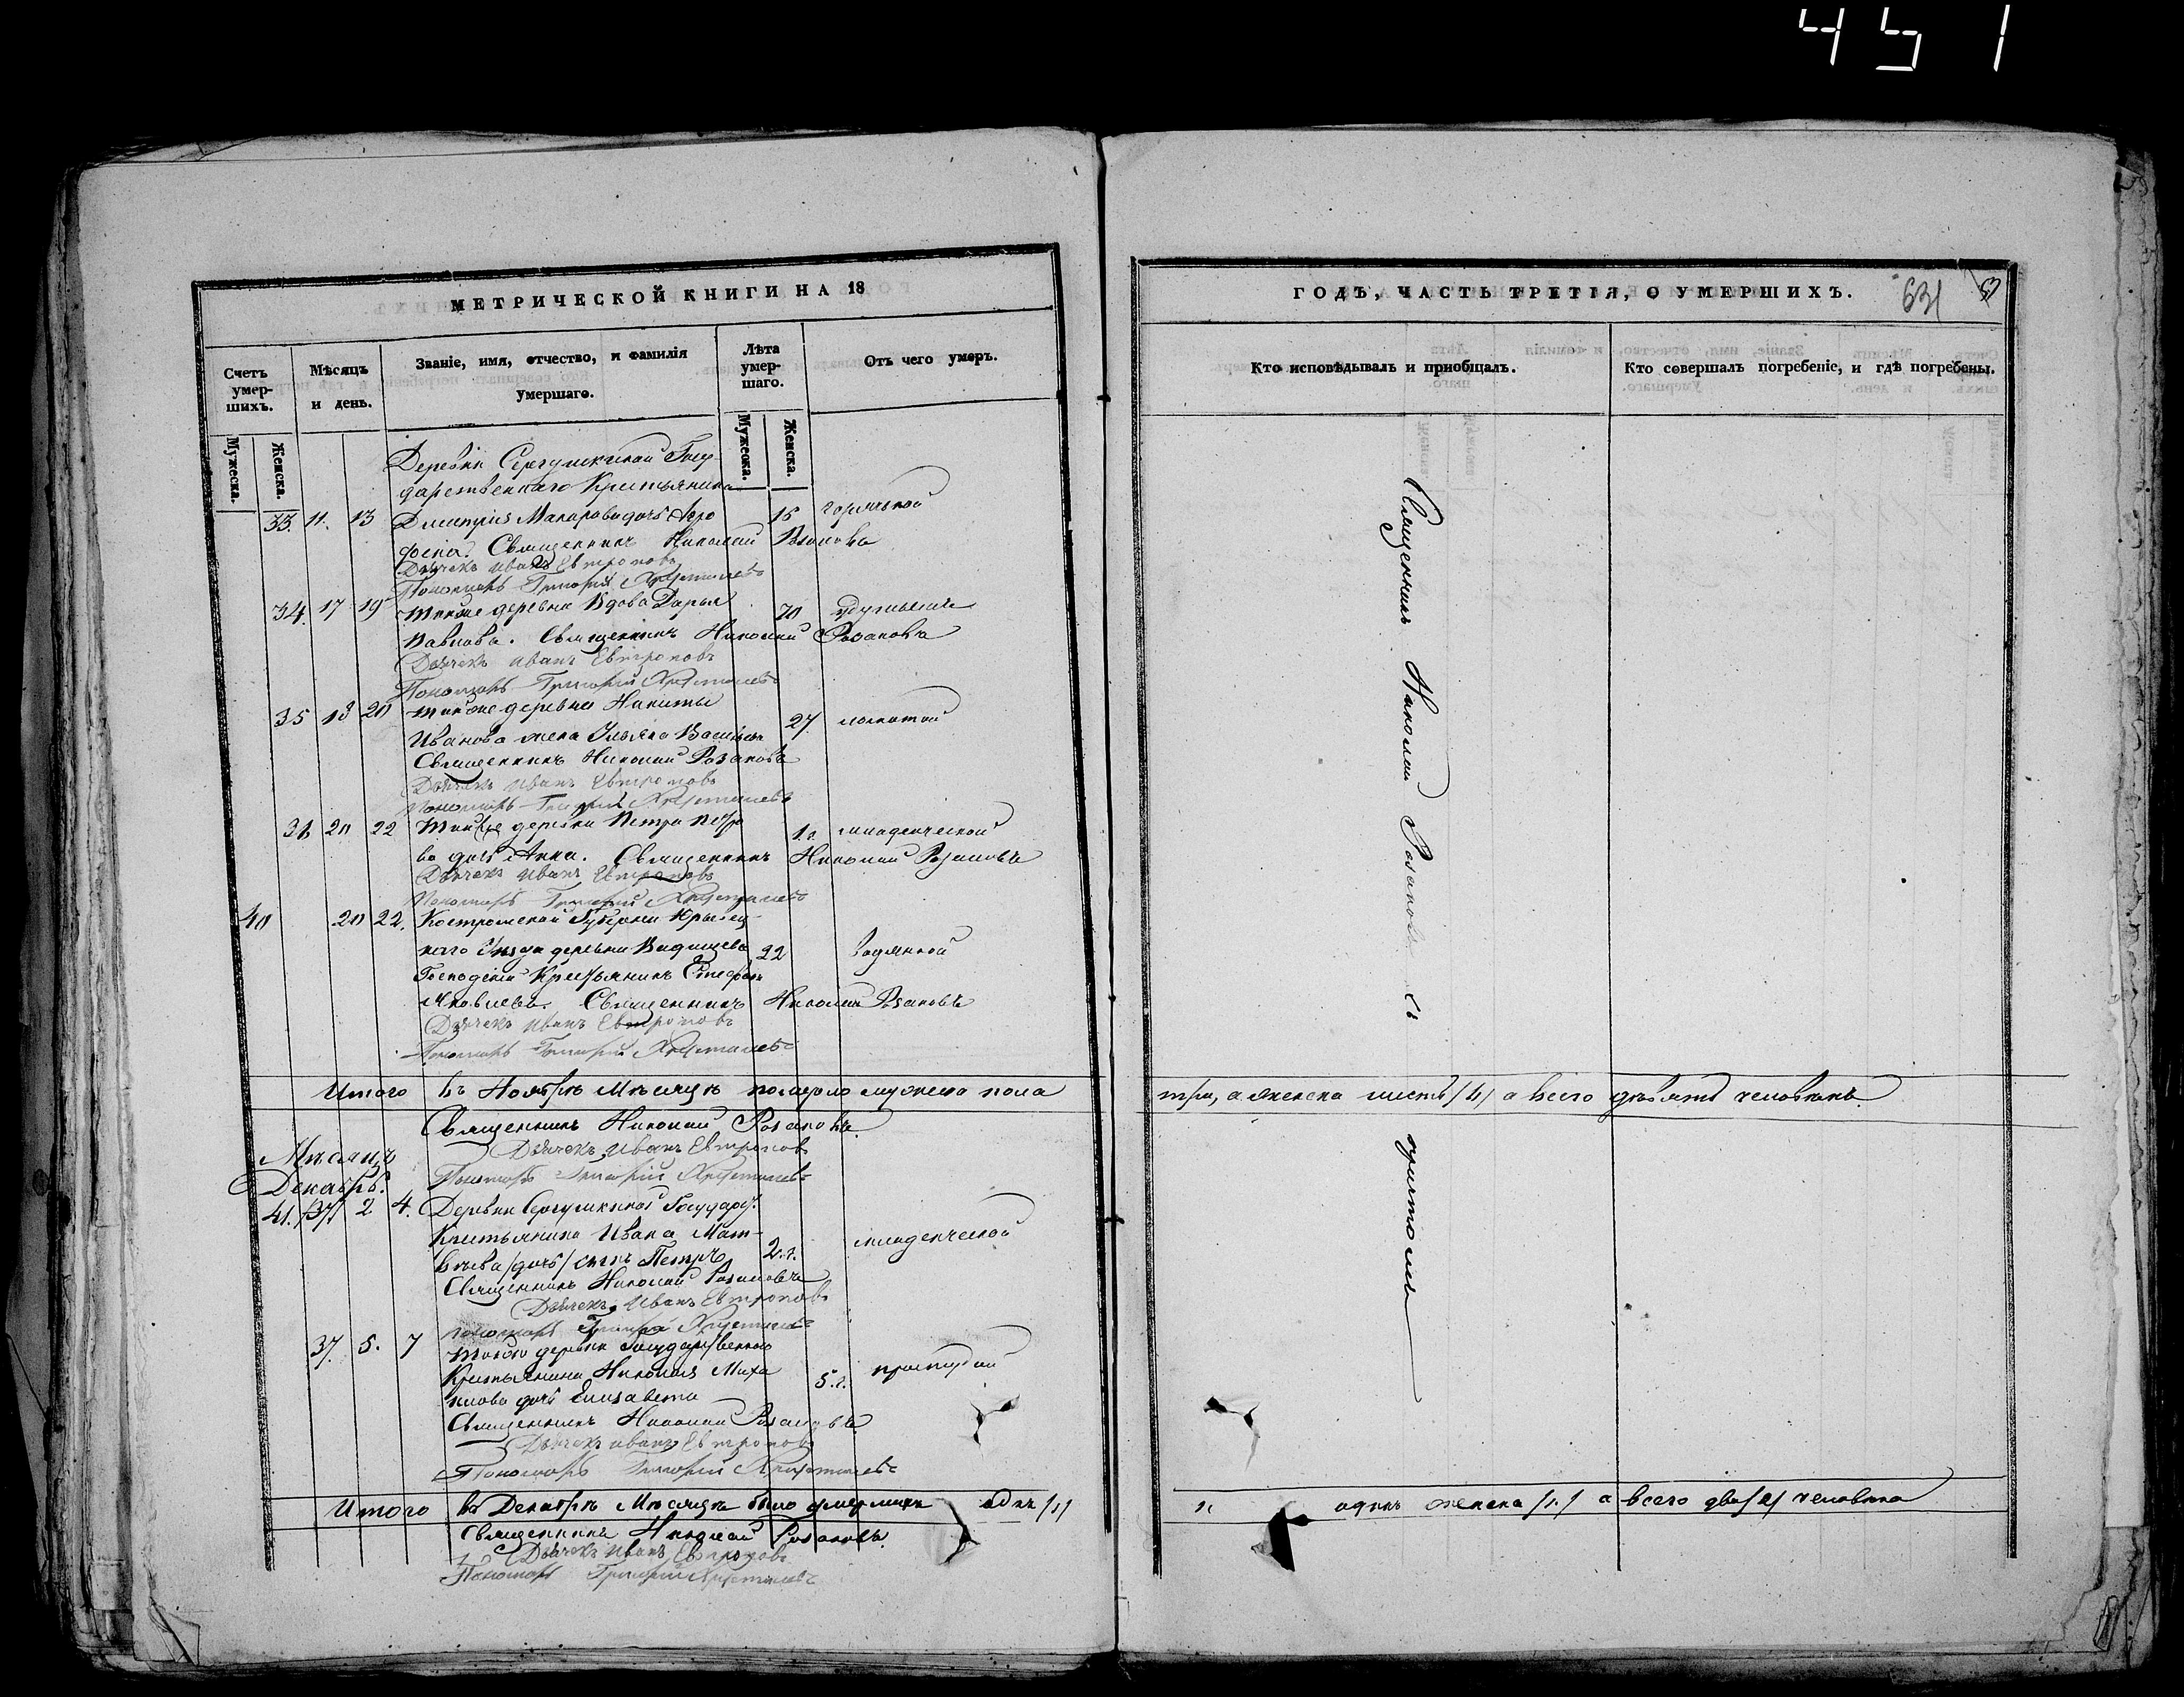 451
МЕТРИЧЕСКОЙ КНИГИ НА 18
Счетъ умер-шихъ.
Мѣсяцъ и день.
Званіе, имя, отчество, и фамилія умершаго.
Лѣта умер-шаго.
Отъ чего умеръ.
Мужеска. Женска.
Мужеска. Женска.
Деревни Сергушкиной Госу-
дарственнаго Крестьянина
33. 11. 13 Димитрія Макарова дочь Агро 15 горячкой
фена. Священникъ Николай Розановъ
Дьячекъ Иванъ Евтроповъ
Пономарь Григорій
34. 17 19 тойже деревни Вдова Дарья 70 удушьемъ
Павлова. Священникъ Николай Розановъ
Дьячекъ Иванъ Евтроповъ
Пономарь Григорій
35 18 20 тойже деревни Никиты 27
Иванова жена Ульяна Васильева
Священникъ Николай Розановъ
Дьячекъ Иванъ Евтроповъ
Пономарь Григорій
36 20 22 тойже деревни Петра Петро 1.г. младенческой
ва дочь Анна. Священникъ Николай Розановъ
Дьячекъ Иванъ Евтроповъ
Пономарь Григорій
40 20 22. Костромской Губерніи
каго Уѣзда деревни 22 водянкой
Господскій Крестьянинъ Стефанъ
Яковлевъ. Священникъ Николай Розановъ
Дьячекъ Иванъ Евтроповъ
Пономарь Григорій
Итого въ Ноябрѣ Мѣсяцѣ померло мужеска пола
Священникъ Николай Розановъ
Дьячекъ Иванъ Евтроповъ
Пономарь Григорій
Мѣсяцъ
Декабрь.
41. /37/ 2 4. Деревни Сергушкиной Государст.
Крестьянина Ивана Мат- младенческой
вѣева /дочь/ сынъ Петръ 2.г.
Священникъ Николай Розановъ
Дьячекъ Иванъ Евтроповъ
Пономарь Григорій
37. 5. 7 тойже деревни Государственнаго
Крестьянина Николая Миха 5.г. простудой
илова дочь Елизавета
Священникъ Николай Розановъ
Дьячекъ Иванъ Евтроповъ
Пономарь Григорій
Итого въ Декабрѣ Мѣсяцѣ было умершихъ одинъ /1/
Священникъ Николай Розановъ.
Дьячекъ Иванъ Евтроповъ
Пономарь Григорій
ГОДЪ, ЧАСТЬ ТРЕТІЯ, О УМЕРШИХЪ.
631
Кто исповѣдывалъ и приобщалъ.
Кто совершалъ погребеніе, и гдѣ погребены.
Священникъ Николай Розановъ съ причтомъ
три, а женска шесть /6/ а всего девять человѣкъ.
одинъ женска /1./ а всего два /2/ человѣка